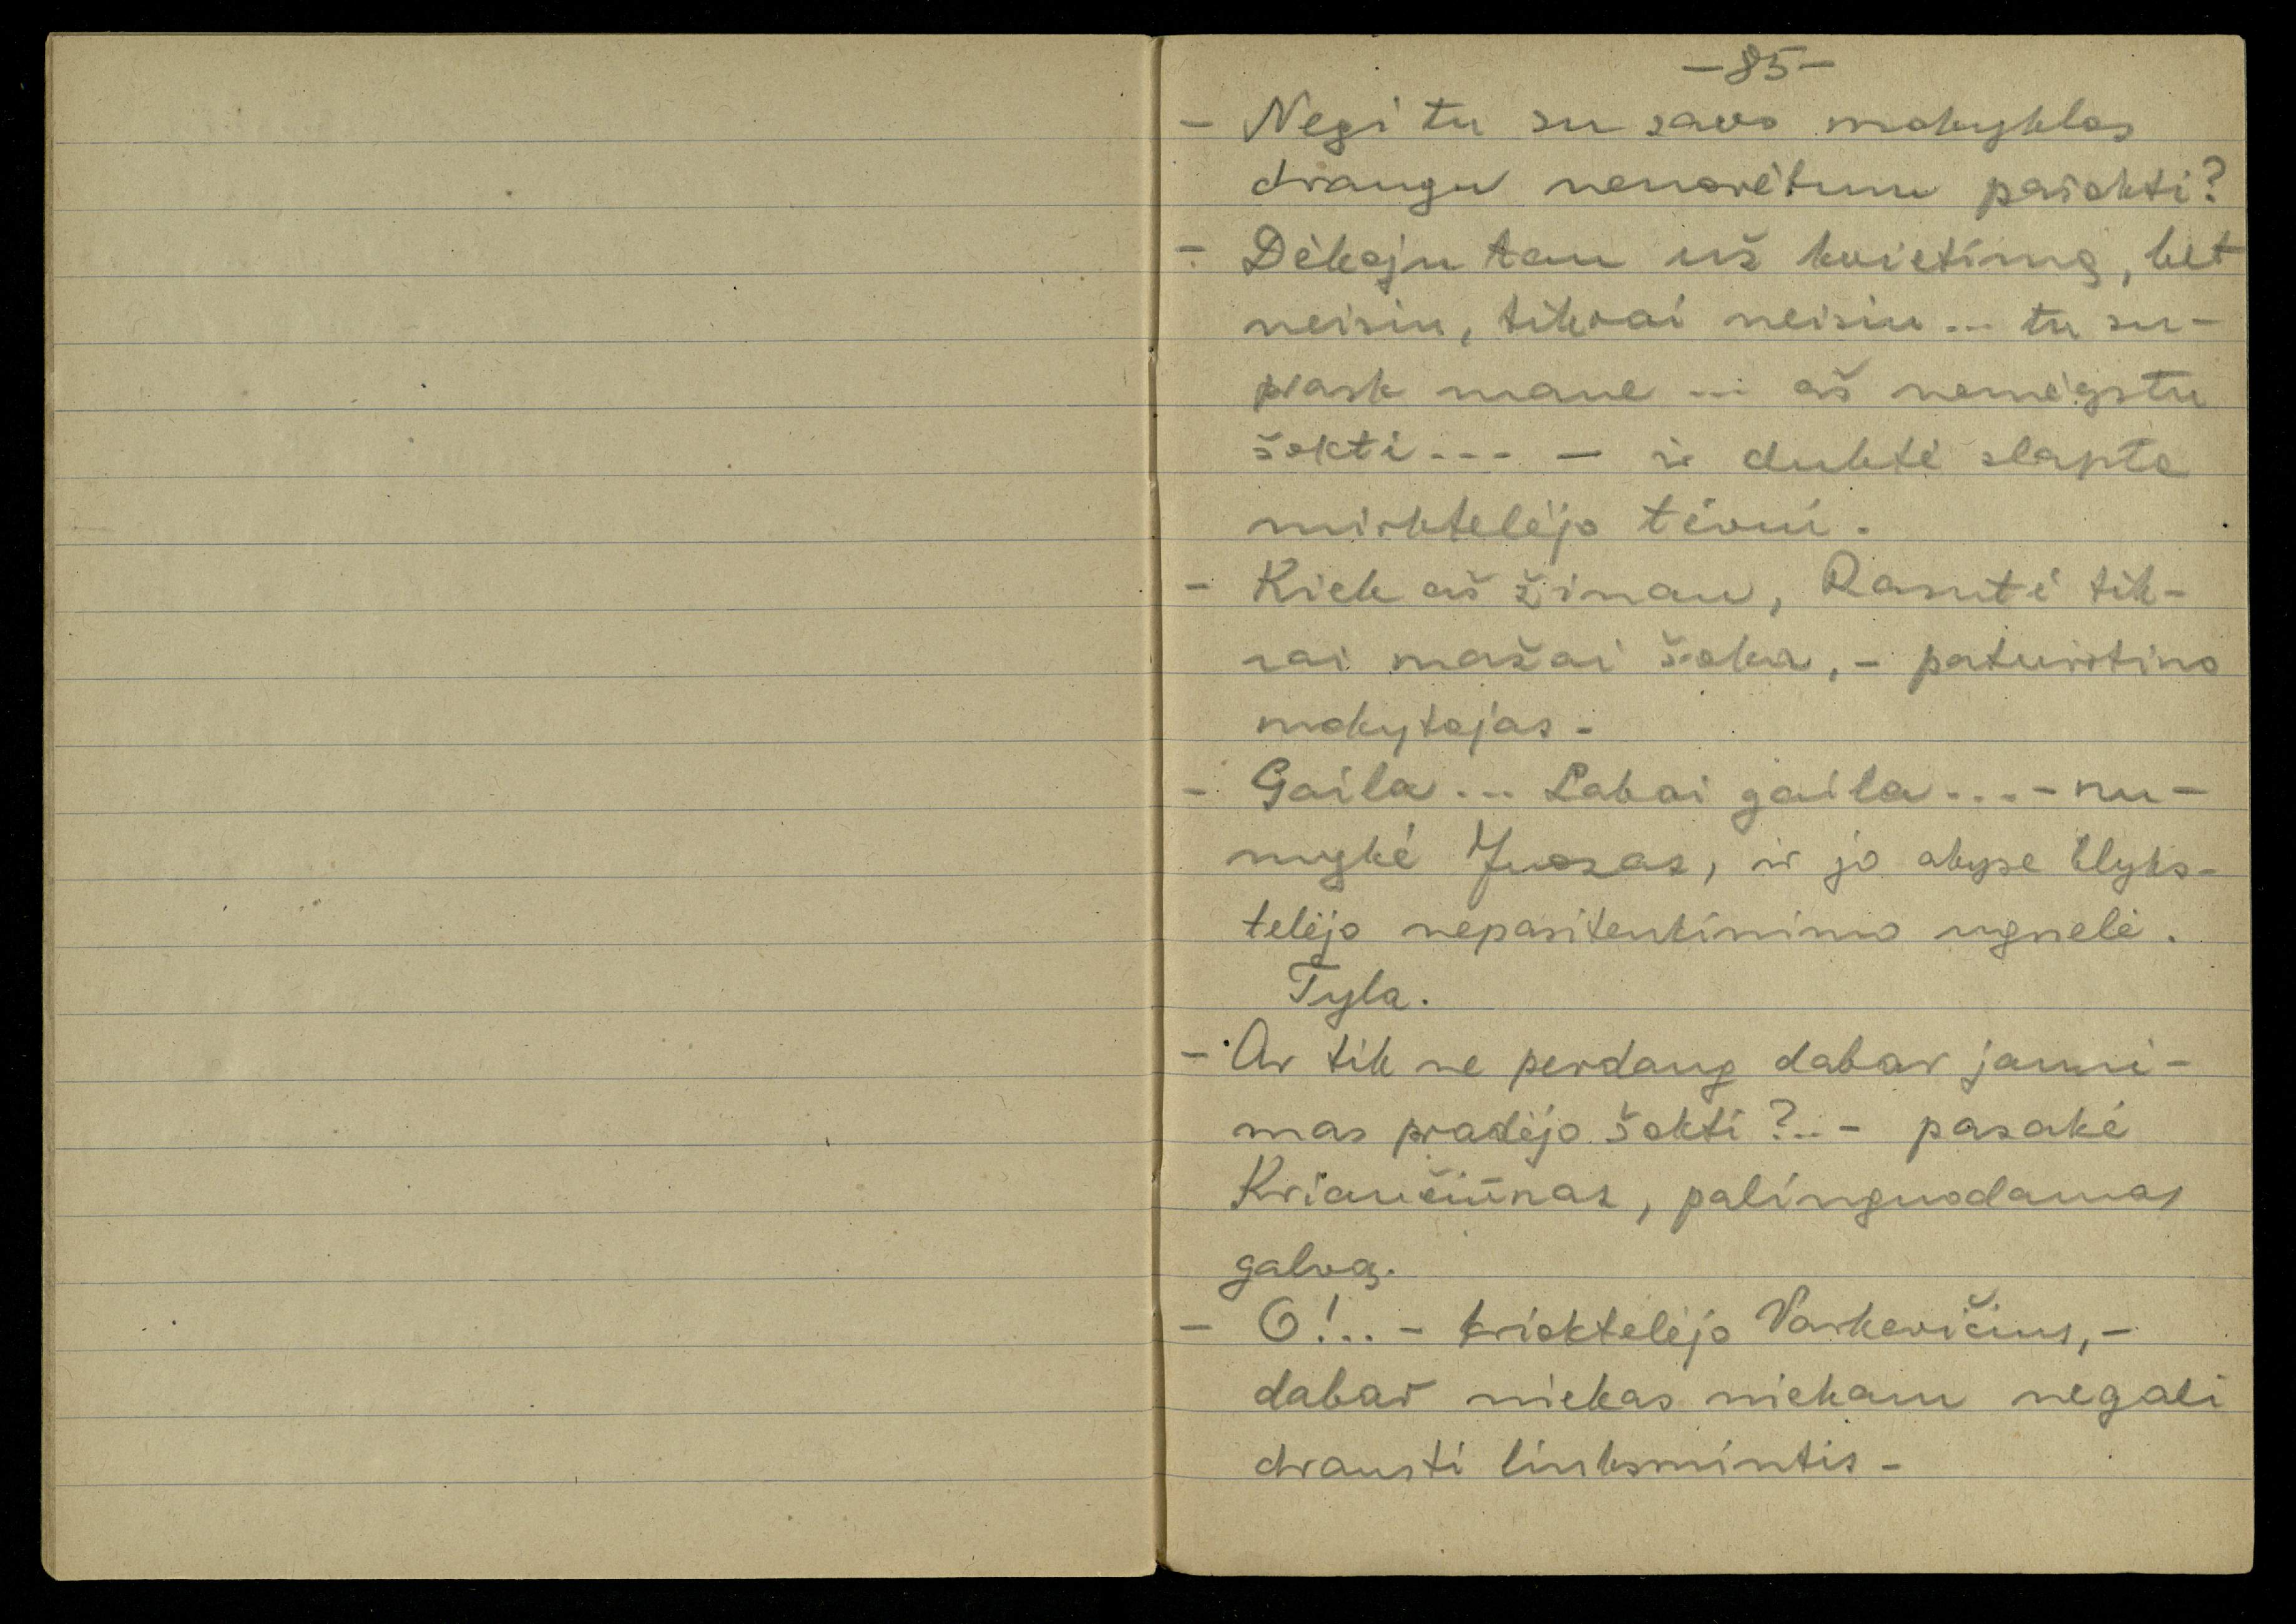 -85-
- Negi tu su savo mokyklos
draugu nenorėtum pašokti?
- Dėkoju tau už kvietimą, bet
neisiu, tikrai neisiu... tu su-
prask mane... aš nemėgstu
šokti... - ir duktė slapta
mirktelėjo tėvui.
- Kiek aš žinau, Rasutė tik-
rai mažai šoka, - patvirtino
mokytojas.
- Gaila... Labai gaila... - nu-
mykė Juozas, ir jo akyse blyks-
telėjo nepasitenkinimo ugnelė.
Tyla.
- Ar tik ne perdaug dabar jauni-
mas pradėjo šokti?.. - pasakė
Kriaučiūnas, palinguodamas
galvą.
- O!.. - krioktelėjo Varkevičius, -
dabar niekas niekam negali
drausti linksmintis -